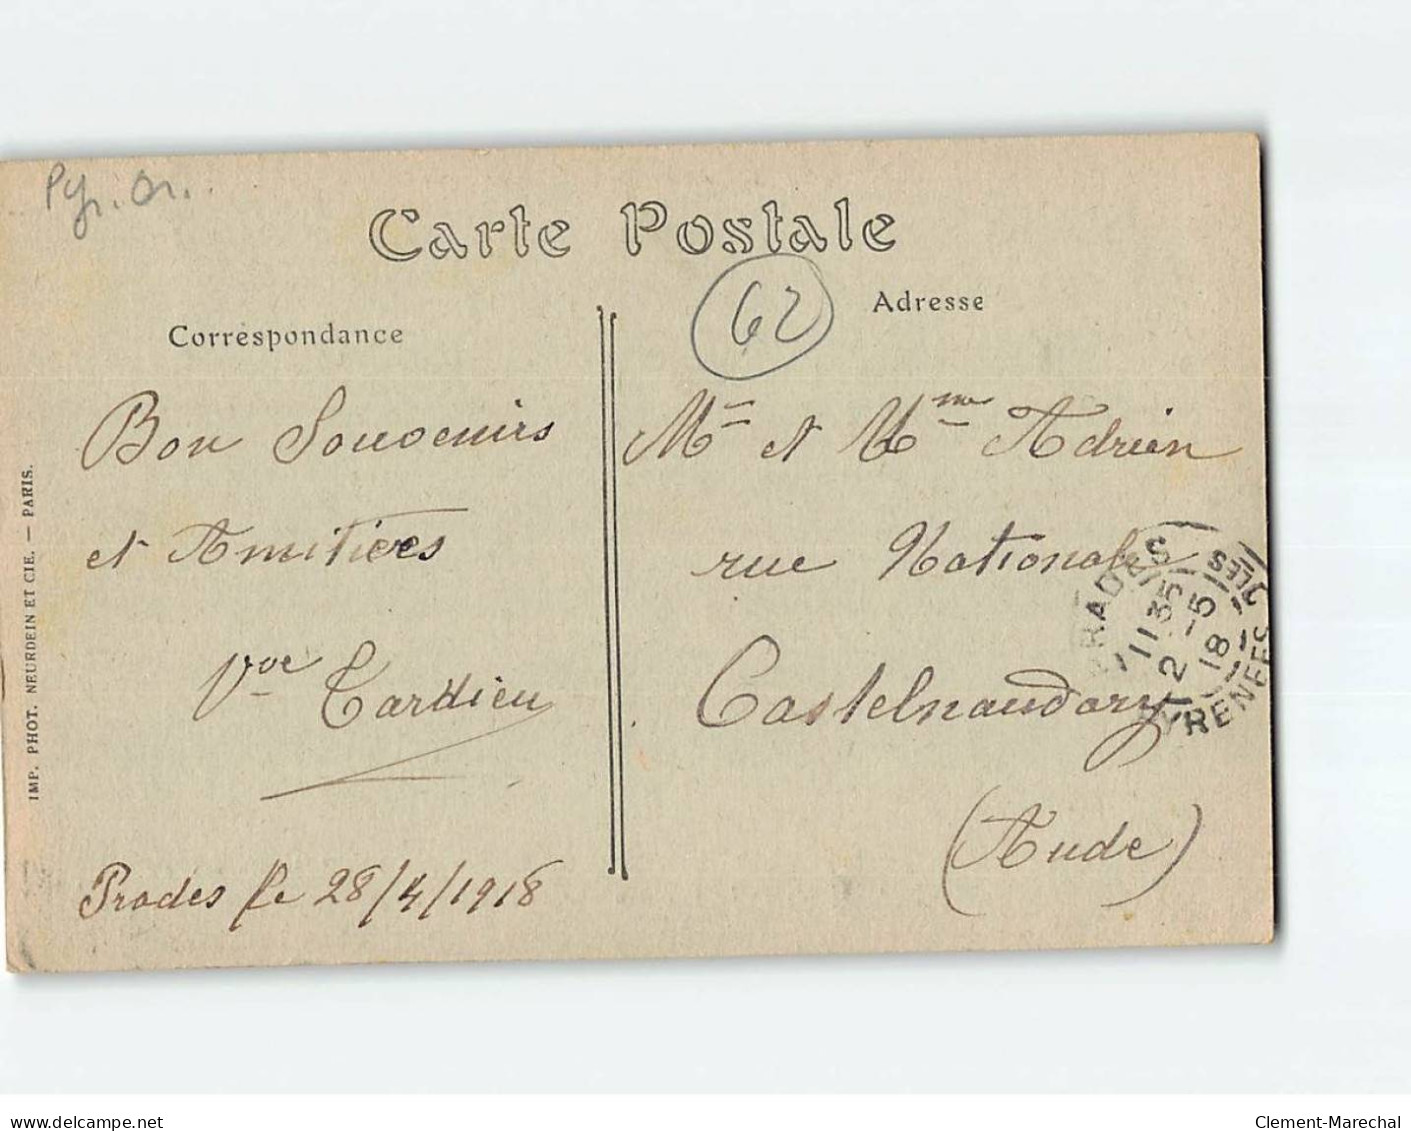 Pyr. Or.
Carte Postale
62
Correspondance
Adresse
Bon Souvenirs
et Amitières
Vve Tardieu
Prades le 28/4/1918
Mr et Mme Adrien
rue Nationale
Castelnaudary
(Aude)
PRADES
11 35
2 -5
18
IMP. PHOT. NEURDEIN ET CIE. — PARIS.
delcampe.net
Clement-Marechal